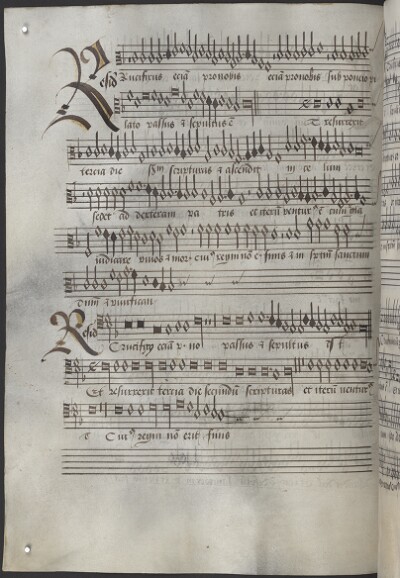 Resid[uum]
Crucifixus eciā pronobis eciā pronobis sub poncio pi
lato passus & sepultus ē Et resurrexit
tercia die scripturas & ascendit in celum
sedet ad dexteram patris et iterū ventur⁹ ē cum
iudicare vivos & mor. cui⁹ regni nō e. finis & in spm̄ sanctum
dnm̄ & vivificantē
Resid
Crucifix⁹ eciā p. no passus & sepultus est
Et resurrexit tercia die secundū scripturas et iterū ventur⁹
ē Cui⁹ regni nō erit finis